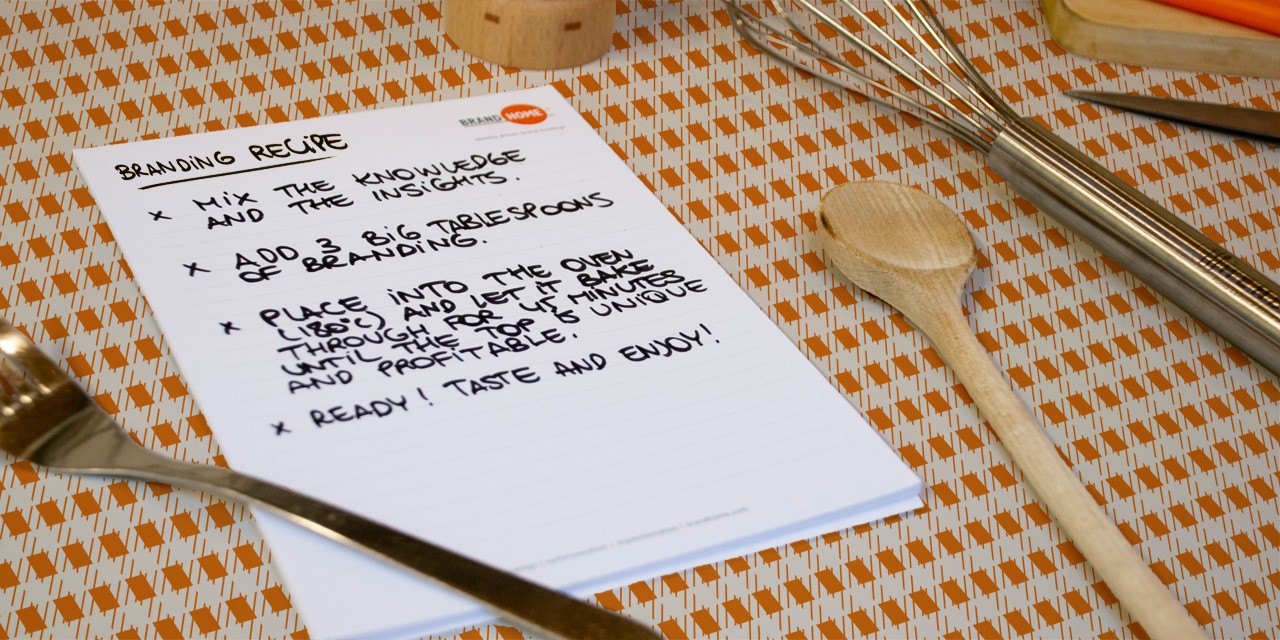 BRAND HOME
BRANDING RECIPE
x MIX THE KNOWLEDGE
AND THE INSIGHTS.
x ADD 3 BIG TABLESPOONS
OF BRANDING.
x PLACE INTO THE OVEN
(180°C) AND LET IT BAKE
THROUGH FOR 45 MINUTES
UNTIL THE TOP IS UNIQUE
AND PROFITABLE.
x READY! TASTE AND ENJOY!